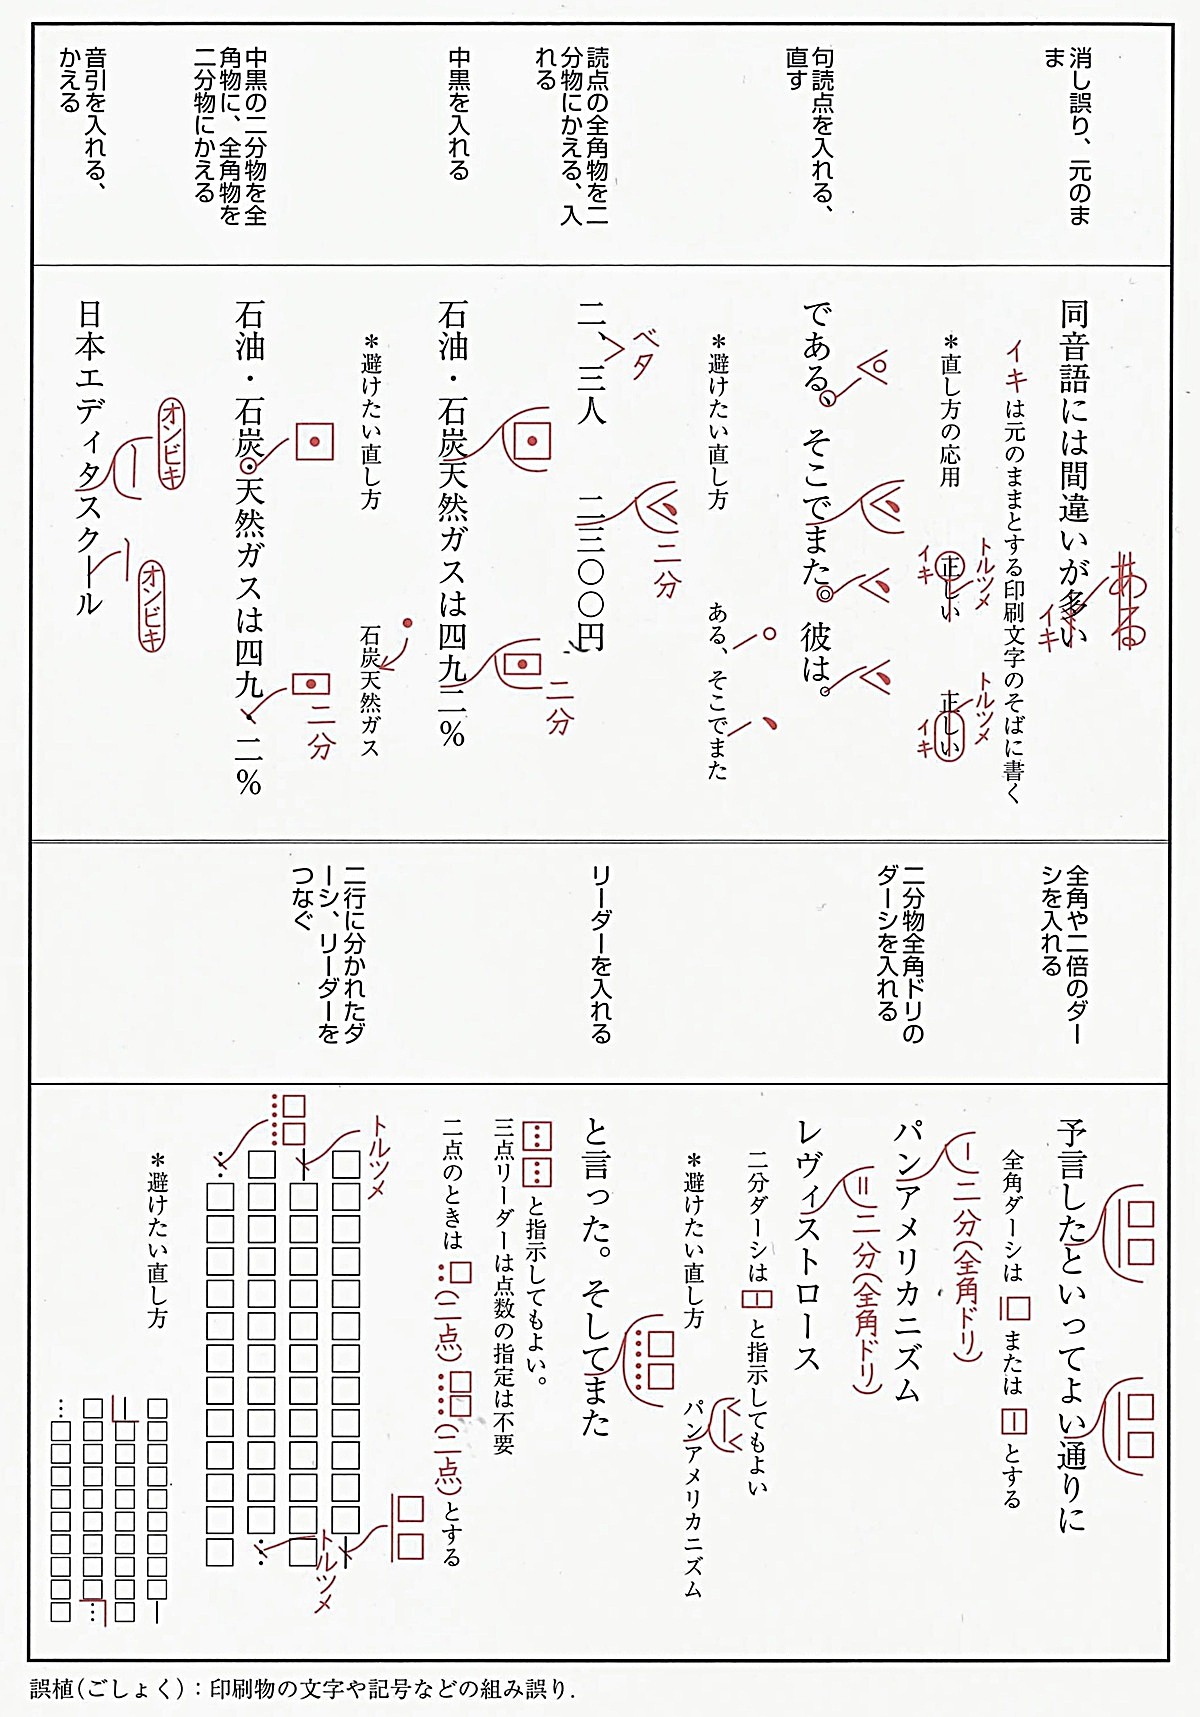 消し誤り、元のまま
同音語には間違いが多い
ある
イキ
イキは元のままとする印刷文字のそばに書く
＊直し方の応用
正しい
トルツメ
イキ
正しい
トルツメ
イキ
句読点を入れる、直す
である、そこでまた。彼は。
＊避けたい直し方
ある、そこでまた
読点の全角物を二分物にかえる、入れる
二、三人　二三〇〇円
ベタ
二分
中黒を入れる
石油・石炭天然ガスは四九二％
二分
＊避けたい直し方
石炭天然ガス
中黒の二分物を全角物に、全角物を二分物にかえる
石油・石炭・天然ガスは四九・二％
二分
音引を入れる、かえる
日本エディタスクール
オンビキ
オンビキ
全角や二倍のダーシを入れる
予言したといってよい通りに
全角ダーシは□または□とする
二分物全角ドリのダーシを入れる
パンアメリカニズム
二分(全角ドリ)
レヴィストロース
二分(全角ドリ)
二分ダーシは□と指示してもよい
＊避けたい直し方
パンアメリカニズム
リーダーを入れる
と言った。そしてまた
□□と指示してもよい。
三点リーダーは点数の指定は不要
二点のときは□(二点)□□(二点)とする
二行に分かれたダーシ、リーダーをつなぐ
トルツメ
トルツメ
＊避けたい直し方
誤植(ごしょく)：印刷物の文字や記号などの組み誤り.